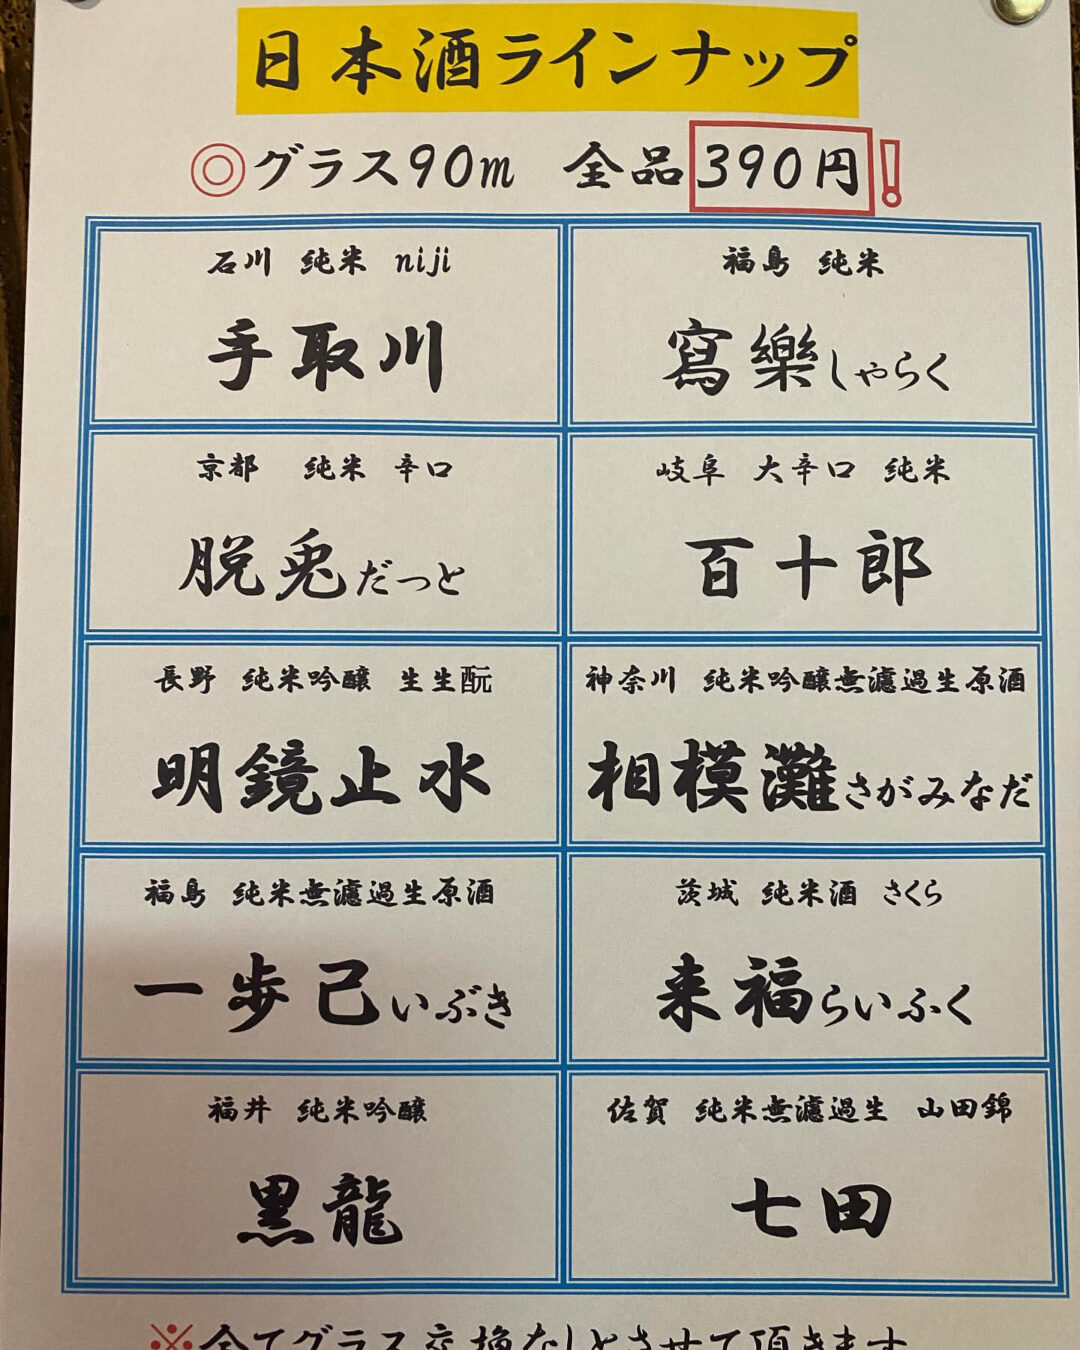 日本酒ラインナップ
◎グラス90m 全品390円!
石川 純米 niji
手取川
福島 純米
寫樂しゃらく
京都 純米 辛口
脱兎だっと
岐阜 大辛口 純米
百十郎
長野 純米吟醸 生生酛
明鏡止水
神奈川 純米吟醸無濾過生原酒
相模灘さがみなだ
福島 純米無濾過生原酒
一歩己いぶき
茨城 純米酒 さくら
来福らいふく
福井 純米吟醸
黒龍
佐賀 純米無濾過生 山田錦
七田
※全てグラス交換なしとさせて頂きます